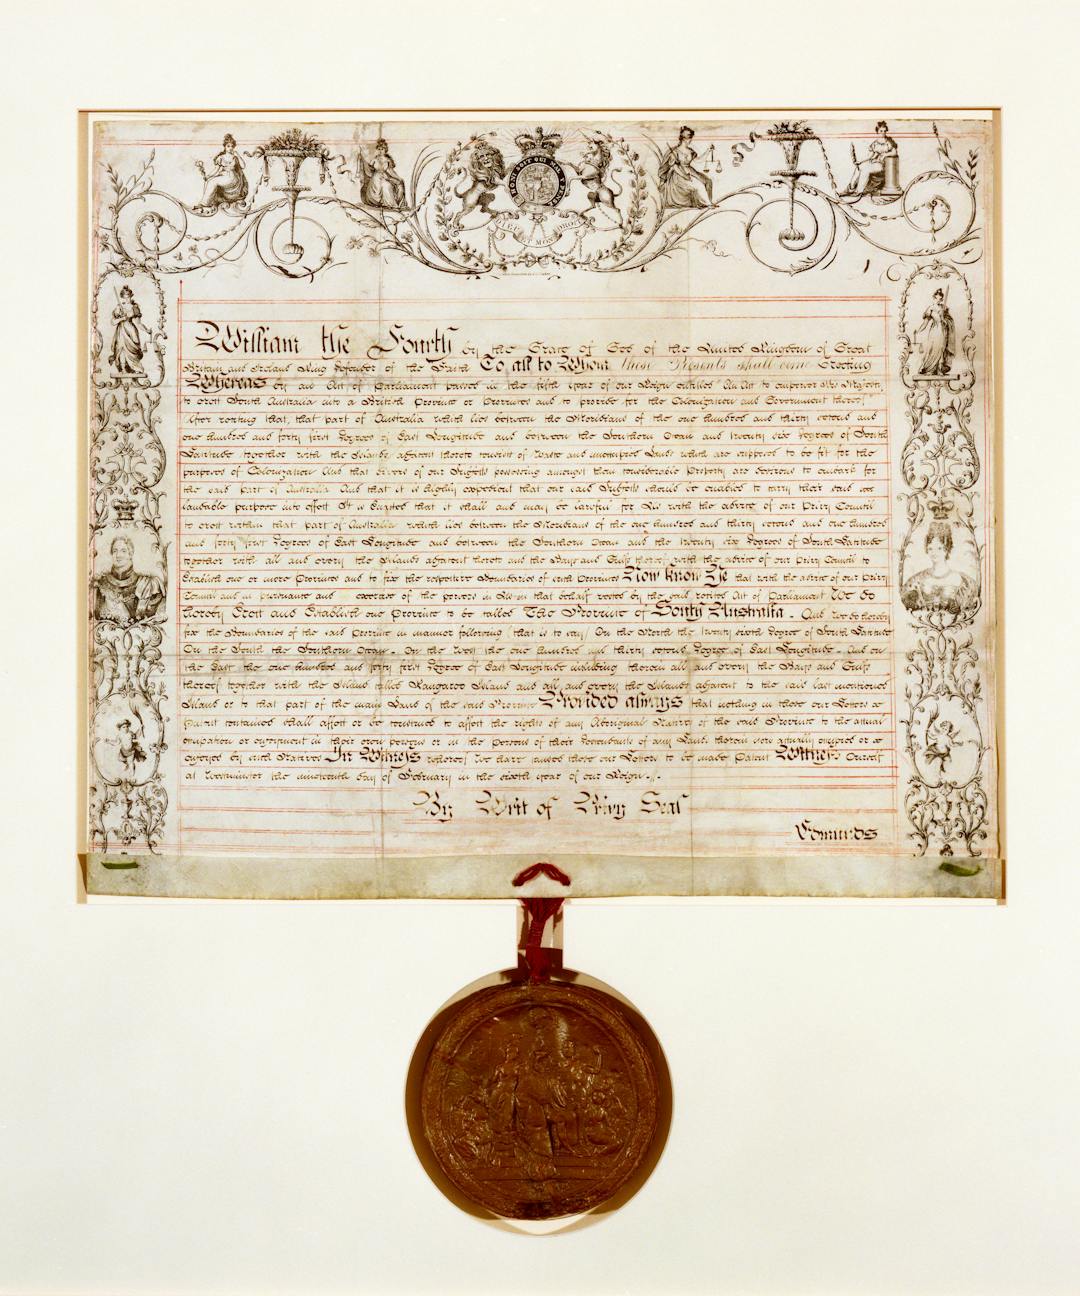 HONI SOIT QUI MAL Y PENSE
DIEU ET MON DROIT
William the Fourth by the Grace of God of the United Kingdom of Great
Britain and Ireland King Defender of the Faith To all to Whom these Presents shall come Greeting
Whereas by an Act of Parliament passed in the fifth year of our Reign entitled An Act to empower His Majesty
to erect South Australia into a British Province or Provinces and to provide for the Colonization and Government thereof
After reciting that, that part of Australia which lies between the Meridians of the one hundred and thirty second and
one hundred and forty first degrees of East Longitude and between the Southern Ocean and twenty six degrees of South
Latitude together with the Islands adjacent thereto consist of Waste and unoccupied Lands which are supposed to be fit for the
purposes of Colonization And that divers of our Subjects possessing amongst them considerable Property are desirous to embark for
the said part of Australia And that it is highly expedient that our said Subjects should be enabled to carry their said
laudable purpose into effect It is Enacted that it shall and may be lawful for Us with the advice of our Privy Council
to erect within that part of Australia which lies between the Meridians of the one hundred and thirty second and one hundred
and forty first degrees of East Longitude and between the Southern Ocean and the twenty six degrees of South Latitude
together with all and every the Islands adjacent thereto and the Bays and Gulfs thereof with the advice of our Privy Council to
Establish one or more Provinces and to fix the respective Boundaries of such Provinces Now Know Ye that with the advice of our Privy
Council and in pursuance and exercise of the powers in Us in that behalf vested by the said recited Act of Parliament We do
hereby Erect and Establish one Province to be called The Province of South Australia - And we do hereby
fix the Boundaries of the said Province in manner following (that is to say) On the North the twenty sixth Degree of South Latitude
On the South the Southern Ocean - On the West the one hundred and thirty second Degree of East Longitude - And on
the East the one hundred and forty first Degree of East Longitude including therein all and every the Bays and Gulfs
thereof together with the Island called Kangaroo Island and all and every the Islands adjacent to the said last mentioned
Island or to that part of the main Land of the said Province Provided always that nothing in these our Letters
Patent contained shall affect or be construed to affect the rights of any Aboriginal Natives of the said Province to the actual
occupation or enjoyment in their own persons or in the persons of their Descendants of any Lands therein now actually occupied or
enjoyed by such Natives In Witness whereof We have caused these our Letters to be made Patent Witness Ourself
at Westminster the nineteenth day of February in the sixth year of our Reign
By Writ of Privy Seal
Edmunds